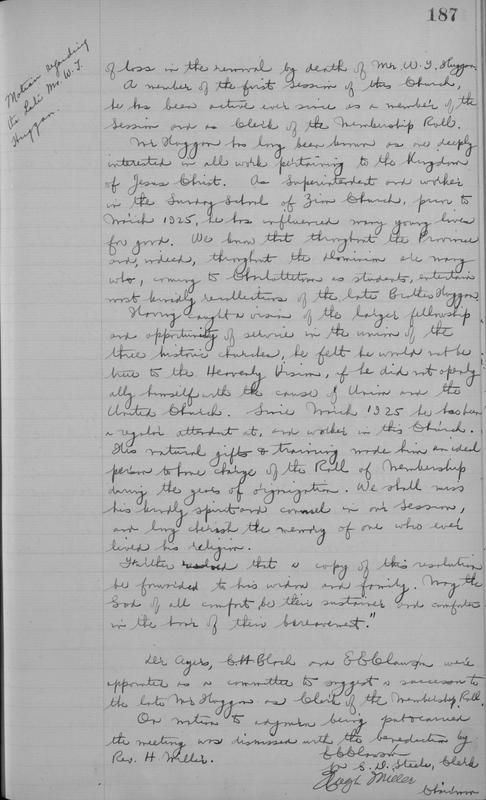 187
Motion regarding
the late Mr. W. T.
Huggan.
of loss in the removal by death of Mr. W. T. Huggan.
A member of the first Session of this Church,
he has been active ever since as a member of the
Session and as Clerk of the Membership Roll.
Mr Huggan has long been known as one deeply
interested in all work pertaining to the Kingdom
of Jesus Christ. As Superintendent and worker
in the Sunday School of Zion Church, prior to
March 1925, he has influenced many young lives
for good. We know that throughout the Province
and, indeed, throughout the Dominion are many
who, coming to Charlottetown as students, entertain
most kindly recollections of the late Brother Huggan.
Having caught a vision of the larger fellowship
and opportunity of service in the union of the
three historic churches, he felt he would not be
true to the Heavenly Vision, if he did not openly
ally himself with the cause of Union and the
United Church. Since March 1925 he has been
a regular attendant at, and worker in this Church.
His natural gifts & training made him an ideal
person to have charge of the Roll of Membership
during the years of organization. We shall miss
his kindly spirit and counsel in our Session,
and long cherish the memory of one who ever
lived his religion.
Further that a copy of this resolution
be forwarded to his widow and family. May the
God of all comfort be their sustainer and comforter
in the hour of their bereavement."
Ayers, and E C Clawson were
appointed as a committee to suggest a successor to
the late Mr Huggan as Clerk of the Membership Roll.
On motion to adjourn being put & carried
the meeting was dismissed with the benediction by
Rev. H. Miller.
E C Clawson
for E. D. Steele, Clerk
Hugh Miller
Chairman